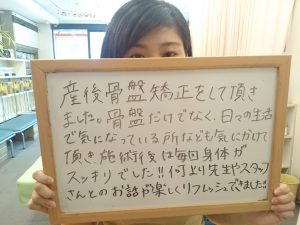 産後骨盤矯正をして頂き
ました。骨盤だけでなく、日々の生活
で気になっている所なども気にかけて
頂き施術後は毎回身体が
スッキリでした!!何より先生やスタッフ
さんとのお話が楽しくリフレッシュできました!!